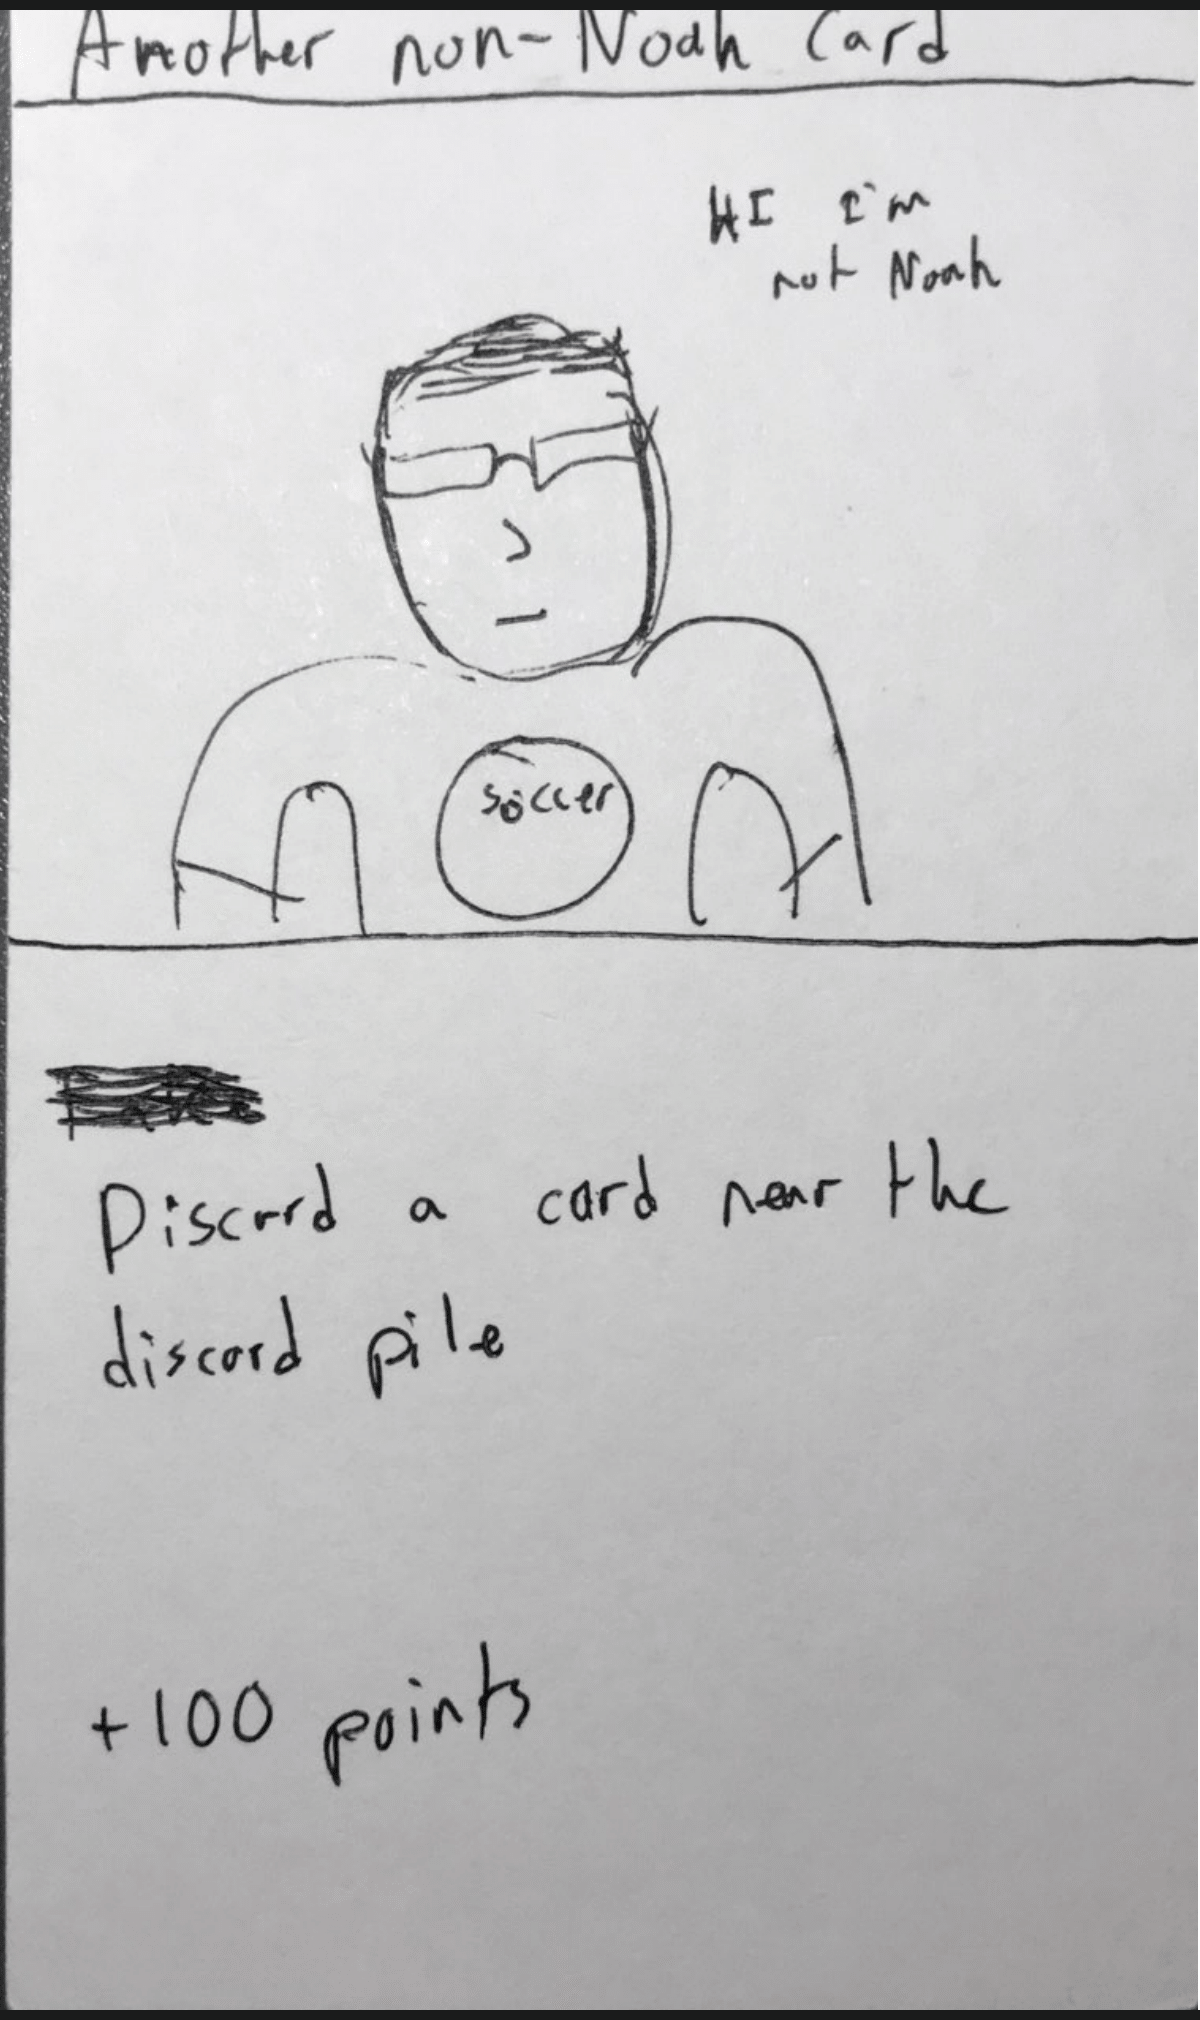 Another non-Noah Card
HI I'm
not Noah
soccer
Discard a card near the
discard pile
+100 points